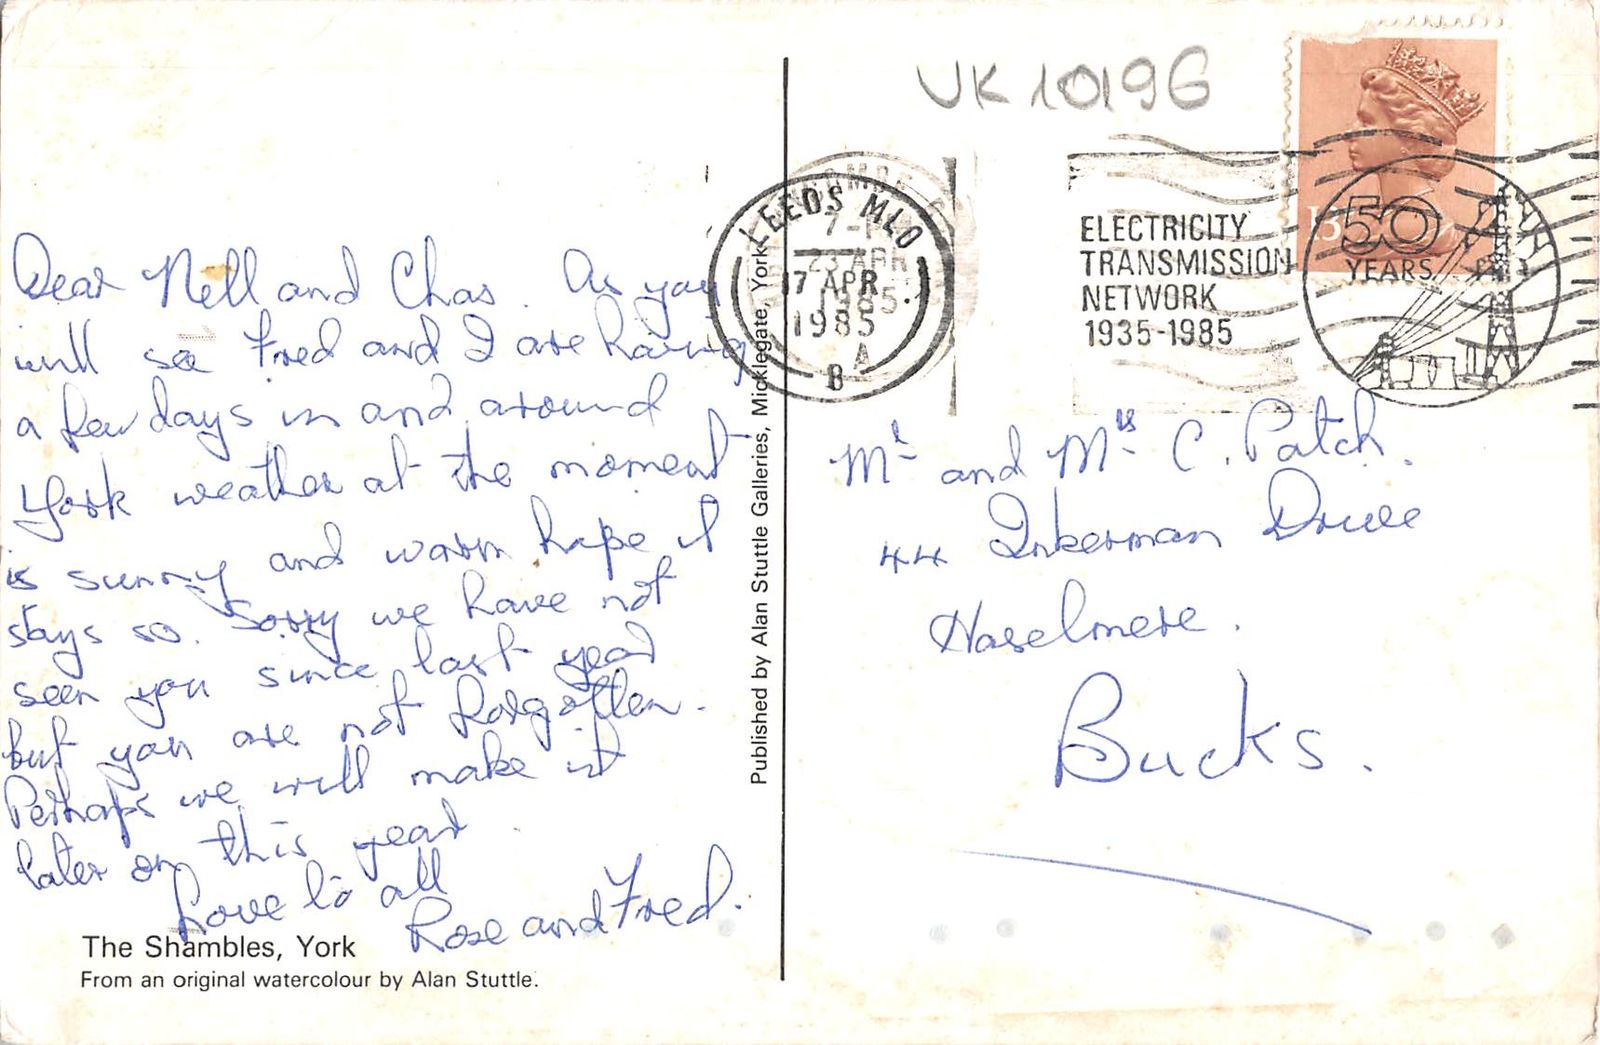 Dear Nell and Chas. As you
will see Fred and I are having
a few days in and around
York weather at the moment
is sunny and warm hope it
stays so. Sorry we have not
seen you since last year
but you are not forgotten.
Perhaps we will make it
later on this year.
Love to all
Rose and Fred.
The Shambles, York
From an original watercolour by Alan Stuttle.
Published by Alan Stuttle Galleries, Micklegate, York
UK 10196
LEEDS MLO
7-
23 APR
17 APR
1985
1985
A
B
ELECTRICITY
TRANSMISSION
NETWORK
1935-1985
50
YEARS
13
Mr and Mrs C. Patch.
44 Inkerman Drive
Haselmere.
Bucks.